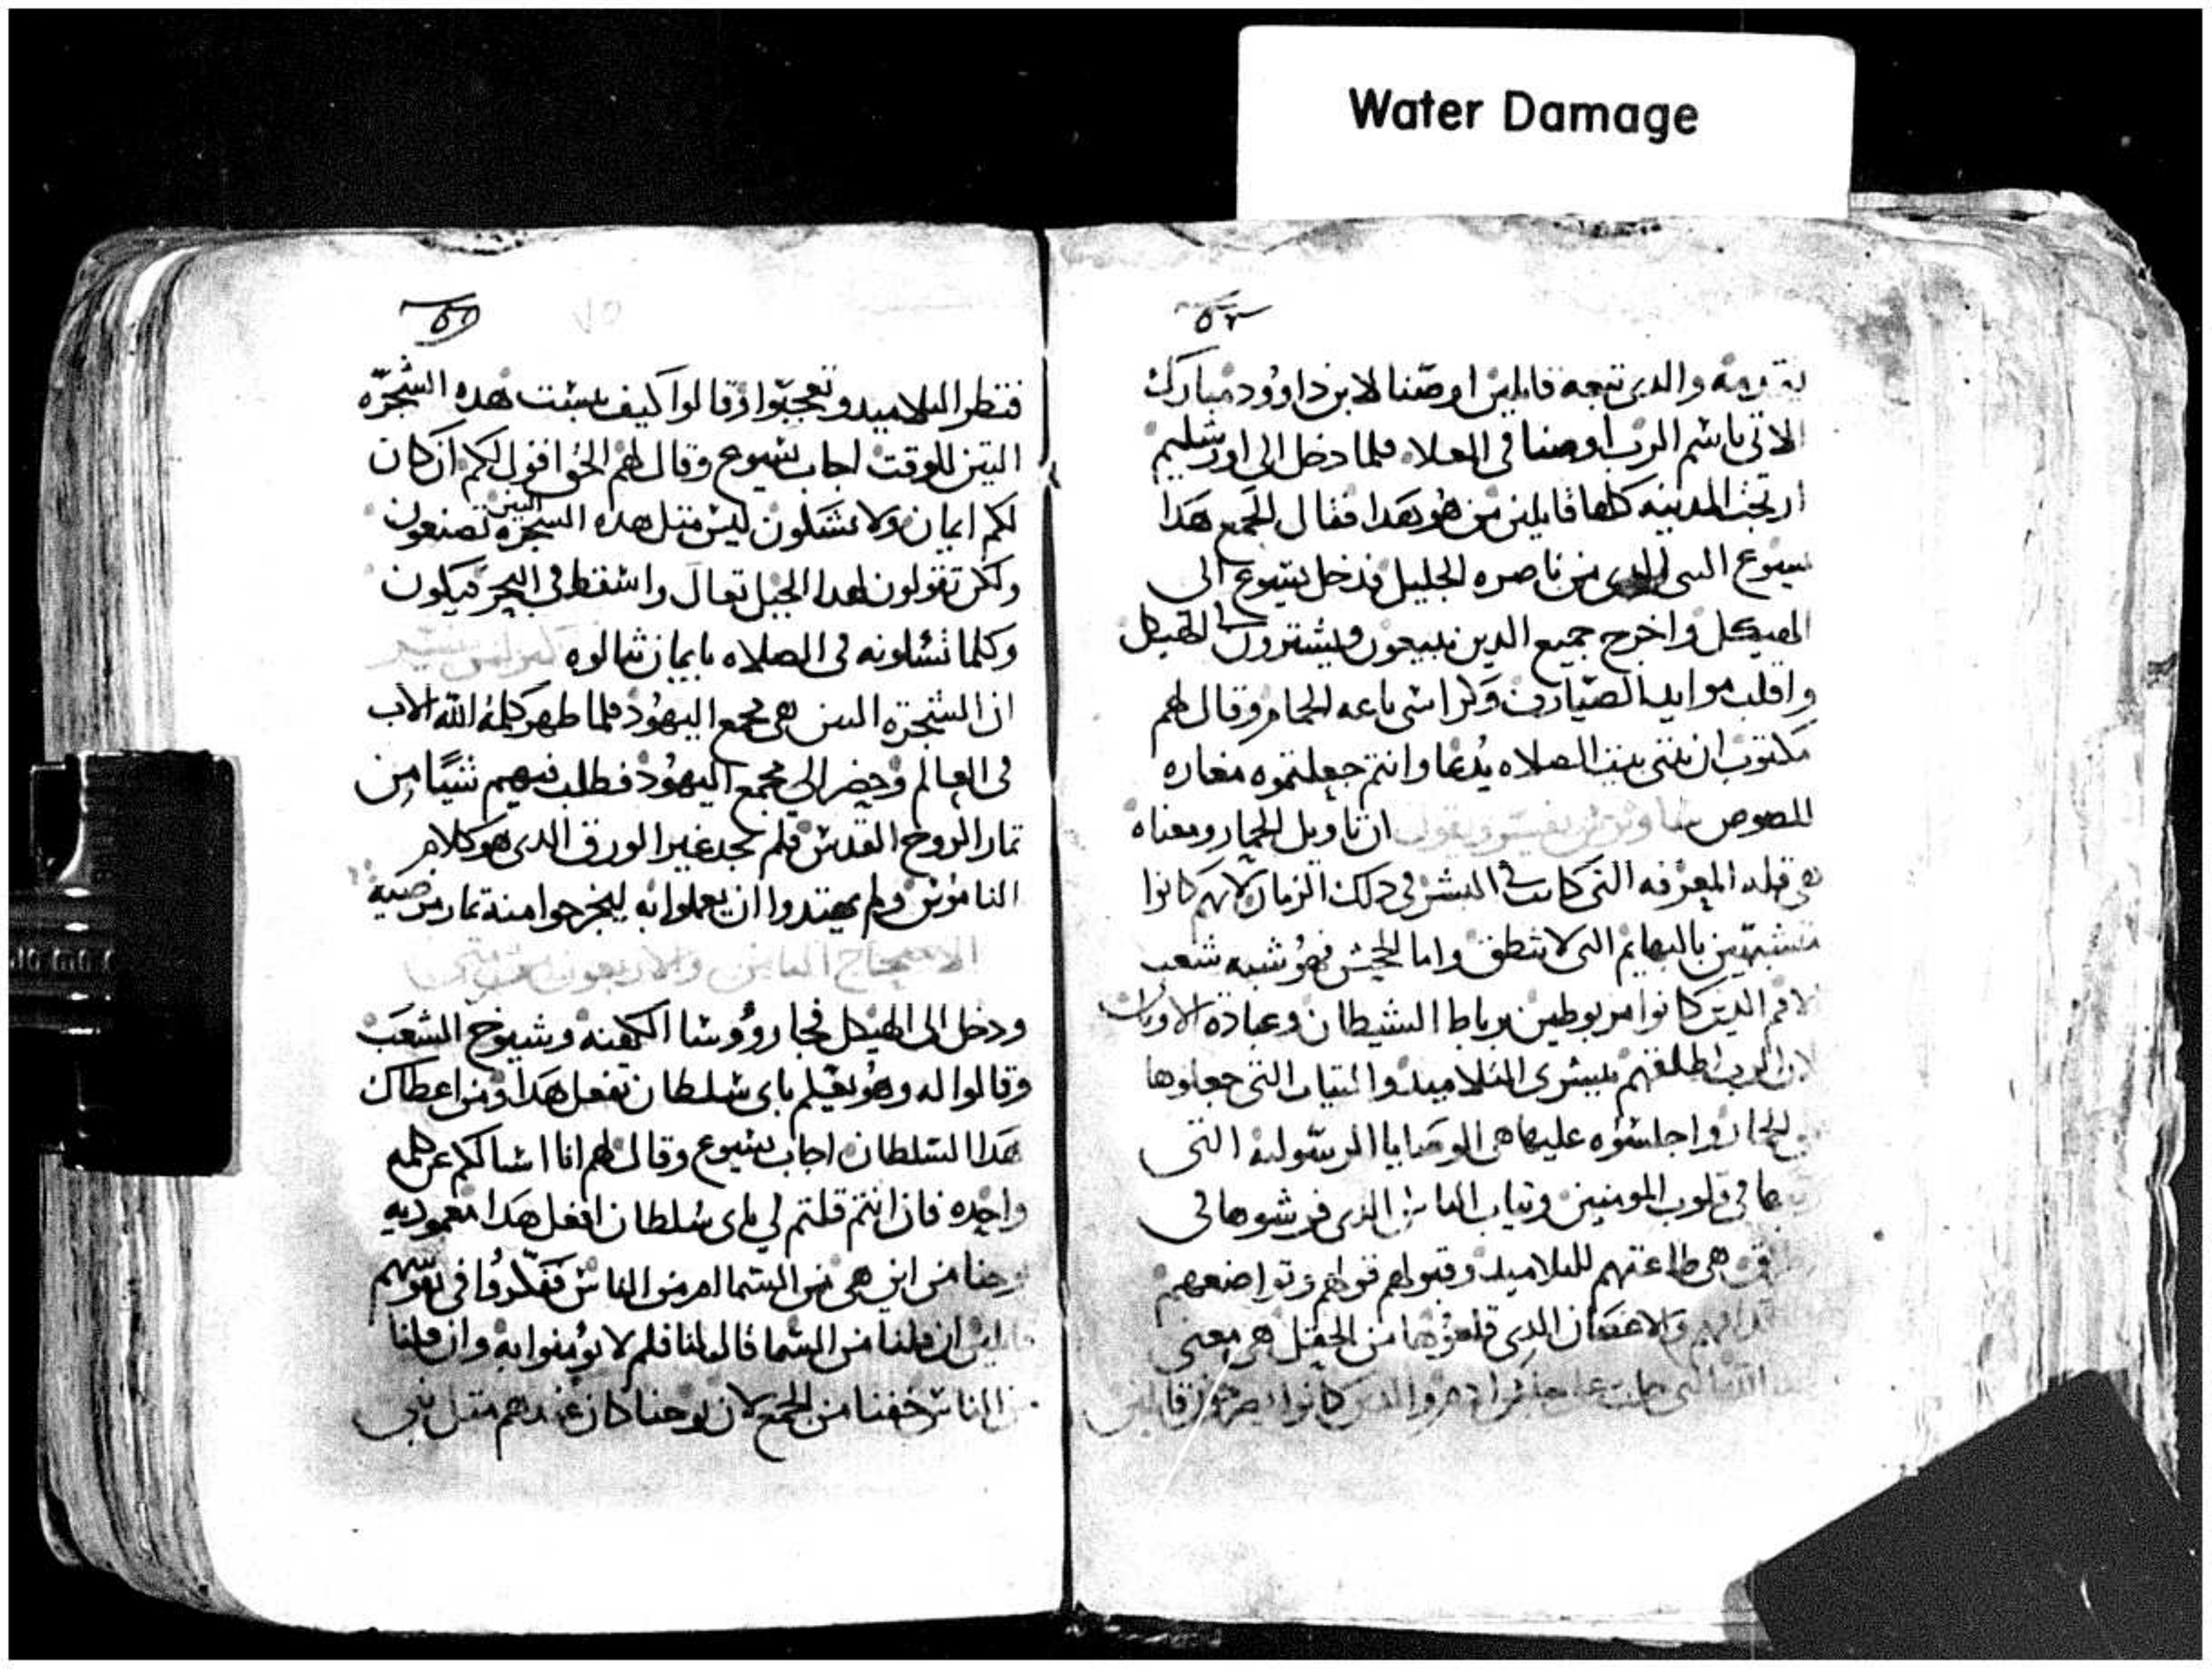 Water Damage
والدى تبعه قايلين اوصنا لابن داوود مبارك
الاتى باسم الرب اوصنا فى العلاء فلما دخل الى اورشليم
ارتجت المدينه كلها قايلين من هو هدا فقال الجمع هدا
يسوع النبى الدى من ناصره الجليل فدخل يسوع الى
الهيكل واخرج جميع الدين يبيعون ويشترون فى الهيكل
واقلب موايد الصيارف وكراسى باعه الحمام وقال لهم
مكتوب ان بيتى بيت الصلاه يدعا وانتم جعلتموه مغاره
للصوص ان تاويل الحمار ومعناه
هى قله المعرفه التى كانت فى البشر فى دلك الزمان لانهم كانوا
متشبهين بالبهايم التى لا تنطق واما الجحش فهو شبه شعب
الامم الدين كانوا مربوطين برباط الشيطان وعباده الاوتان
لان الرب اطلقهم ببشرى التلاميد والتياب التى جعلوها
على الحمار واجلسوه عليها هى الوصايا الرسوليه التى
فى قلوب المومنين وتياب الناس الدى فرشوها فى
هى طاعتهم للتلاميد وقبولهم قولهم وتواضعهم
والاغصان الدى قطعوها من الحقل هى معنى
والدين كانوا يصرخون قايلين
فنظر التلاميد وتعجبوا وقالوا كيف يبست هده الشجره
التين للوقت اجاب يسوع وقال لهم الحق اقول لكم ان كان
لكم ايمان ولا تشكون ليس متل هده الشجره التين تصنعون
ولكن تقولون لهدا الجبل تعال واسقط فى البحر فيكون
وكلما تسلونه فى الصلاه بايمان تنالوه
ان الشجره التين هى مجمع اليهود فلما ظهر كلمة الله الاب
فى العالم وحضر الى مجمع اليهود فطلب فيهم شيًا من
تمار الروح القدس فلم يجد غير الورق الدى هو كلام
الناموس ولم يهتدوا ان يعملوا به ليخرجوا منه تمار مرضيه
الاصحاح التامن والاربعون
ودخل الى الهيكل فجا رووسا الكهنه وشيوخ الشعب
وقالوا له وهو يعلم باى سلطان تفعل هدا ومن اعطاك
هدا السلطان اجاب يسوع وقال لهم انا اسالكم عن كلمه
واحده فان انتم قلتم لى باى سلطان افعل هدا معموديه
يوحنا من اين هى من السما ام من الناس ففكروا فى نفوسهم
قايلين ان قلنا من السما قال لنا فلم لا تؤمنوا به وان قلنا
من الناس خفنا من الجمع لان يوحنا كان عندهم متل نبى